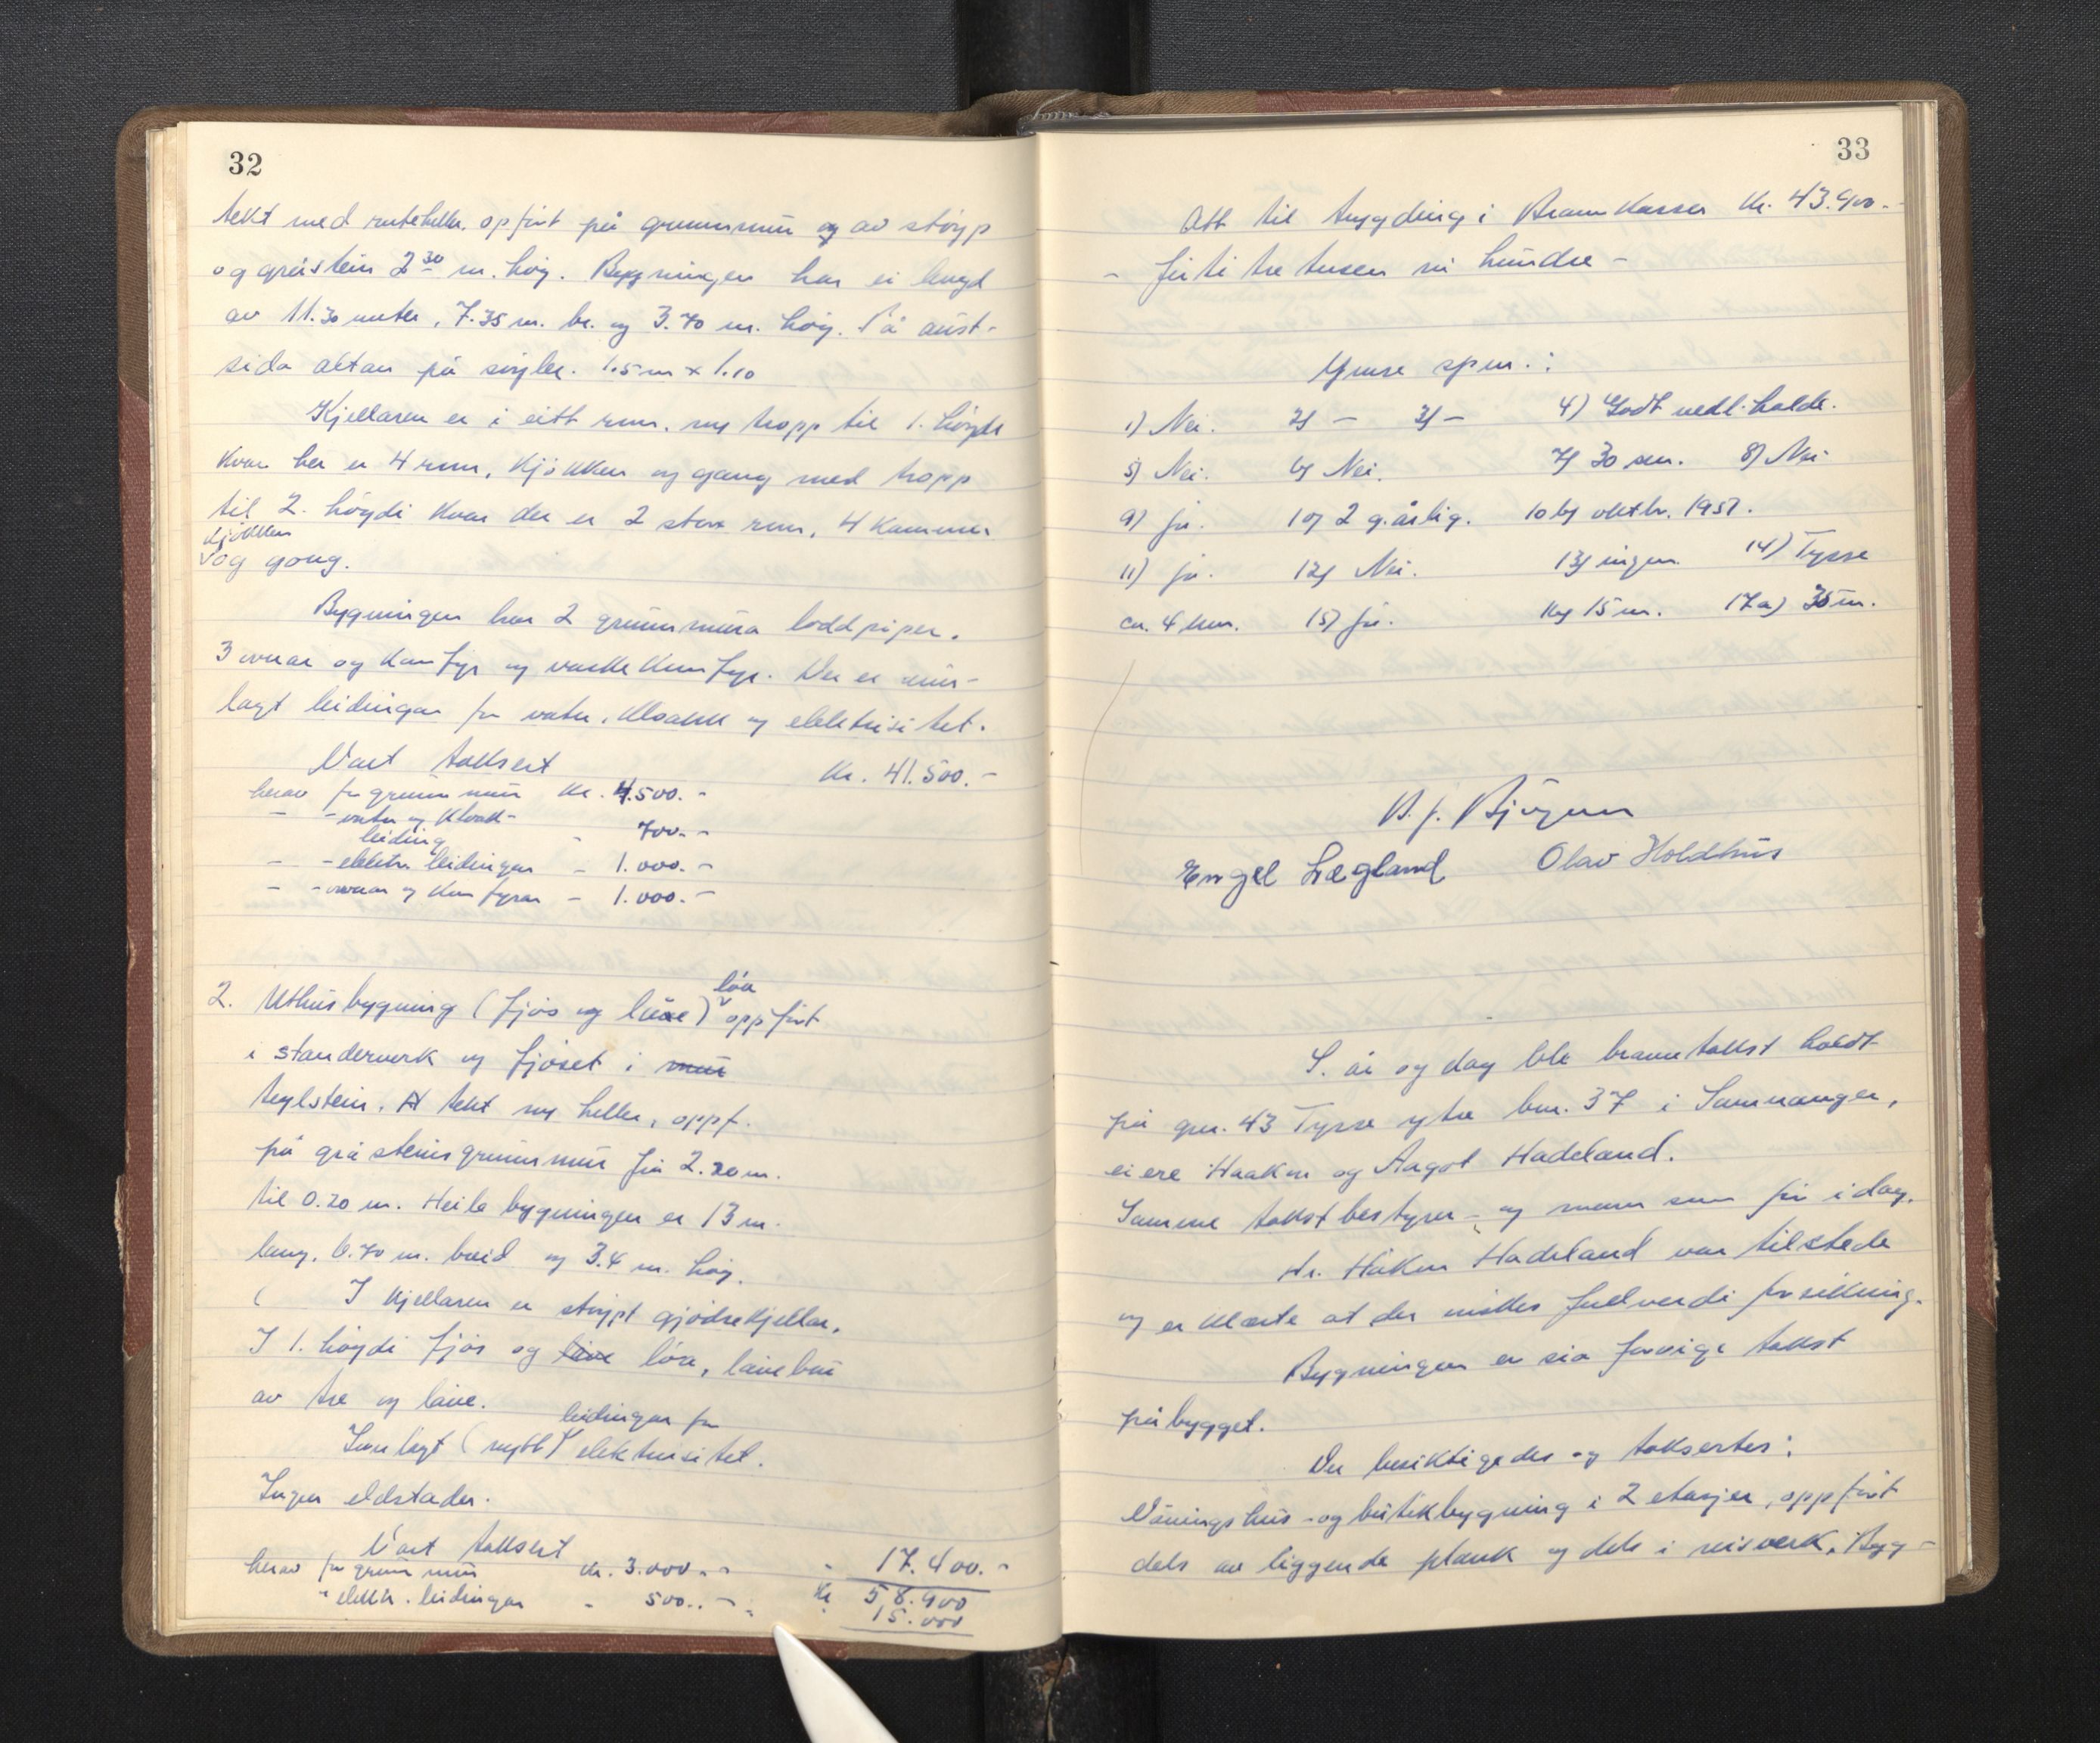 32
tekt med rutehella, oppført på grunnmur og av støyp
og gråstein 2 30 m. høg. Bygningen har ei lengd
av 11.30 meter, 7.35 m. br. og 3.70 m. høg. På aust-
sida altan på søyler. 1.5 m x 1.10
Kjellaren er i eitt rum, my tropp til 1. høgde
kvar her er 4 rum, kjøkken og gang med tropp
til 2. høgdi kvar der er 2 store rum, 4 kammer
kjøkken
og gong.
Bygningen har 2 grunnmura loddpiper.
3 ovnar og komfyr og vaskekomfyr. Der er inn-
lagt leidingar for vatn, kloakk og elektrisitet.
Vart taksert kr. 41.500.-
herav for grunnmur kr. 4.500.-
- - vatn og kloakk-
leiding - 700.-
- - elektr. leidingar - 1.000.-
- - ovnar og komfyrar - 1.000.-
2. Uthusbygning (fjøs og låve) løa oppført
i standerverk og fjøset i mur
teglstein. tekt my heller, oppf.
på gråsteinsgrunnmur frå 2.20 m.
til 0.20 m. Heile bygningen er 13 m.
lang, 6.70 m. breid og 3.4 m. høg.
( I kjellaren er støypt gjødselkjellar.
I 1. høgdi fjøs og låve løe, låvebru
av tre og låve.
leidingar for
Innlagt (nytt) elektrisitet.
Ingen eldstader.
Vart taksert - 17.400.-
herav for grunnmur kr. 3.000.-
" elektr. leidingar - 500.-
kr 58.900
15.000
33
Att til trygding i Brannkassen kr. 43.900.-
- førti tre tusen ni hundre -
Ymse spm.:
1) Nei. 2) - 3) - 4) Godt vedl.halde.
5) Nei. 6) Nei. 7) 30 sm. 8) Nei
9) ja. 10) 2 g.årlig. 10b) oktbr. 1951.
11) ja. 12) Nei. 13) ingen. 14) Tysse
ca. 4 km. 15) ja. 16) 15 m. 17a) 35 m.
Engel Lægland Olav Holdhus
S. år og dag ble branntakst holdt
på gnr. 43 Tysse ytre bnr. 37 i Samnanger,
eiere Haakon og Aagot Hadeland.
Samme takstbestyrer - og menn som før i dag.
Hr. Håkon Hadeland var tilstede
og erklærte at der ønskes fullverdi forsikring.
Bygningen er sia forrige takst
påbygget.
Der besiktigedes og taksertes:
Våningshus - og butikkbygning i 2 etasjer, oppført
dels av liggende plank og dels i reisverk. Byg-